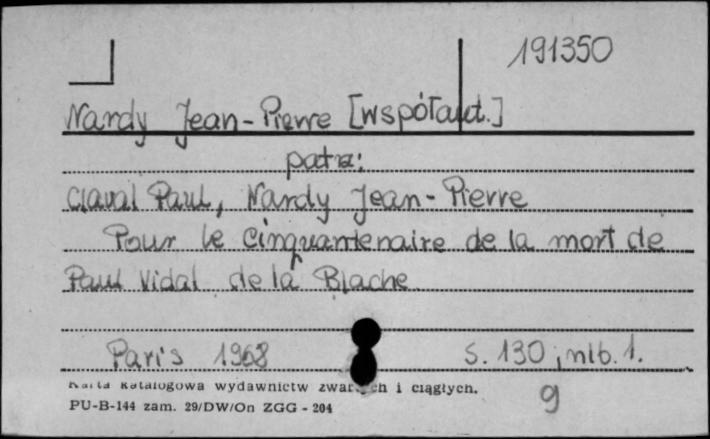 191350
Nardy Jean-Pierre [współaut.]
patrz:
Claval Paul, Nardy Jean-Pierre
Pour le Cinquantenaire de la mort de
Paul Vidal de la Blache
Paris 1968 s. 130, nlb. 1.
Karta katalogowa wydawnictw zwartych i ciągłych.
PU-B-144 zam. 29/DW/On ZGG - 204
g